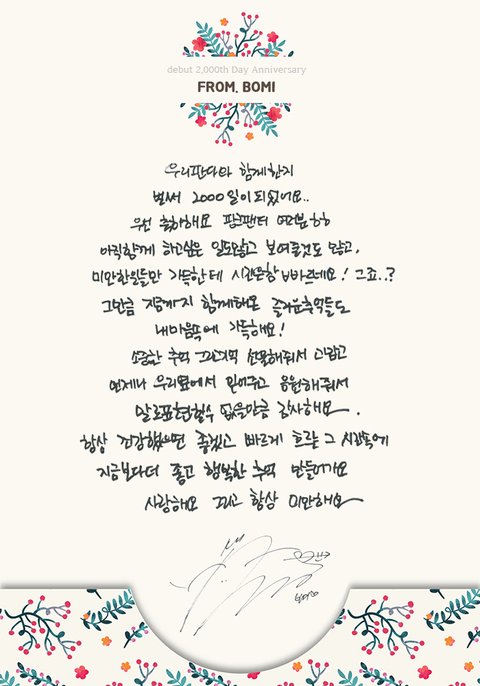 debut 2,000th Day Anniversary
FROM. BOMI
우리판다와 함께한지
벌써 2000일이 되었어요..
우선 축하해요 팡팬더 여러분ㅎㅎ
아직함께 하고싶은 일도많고 보여줄것도 많고,
미안한일들만 가득한데 시간은참 빠르네요! 그죠..?
그만큼 지금까지 함께해온 즐거운추억들도
내마음속에 가득해요!
소중한 추억 그리고 선물해줘서 고맙고
언제나 우리옆에서 믿어주고 응원해줘서
말로표현할수 없을만큼 감사해요.
항상 건강했으면 좋겠고 빠르게 흐르는 그 시간속에
지금보다더 좋고 행복한 추억 만들어가요
사랑해요 그리고 항상 미안해요